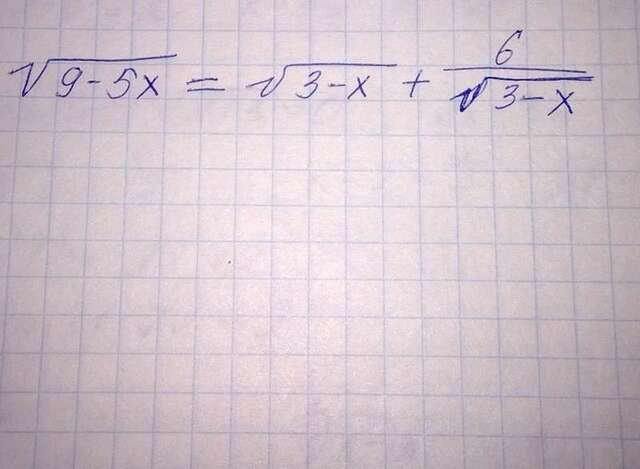 √(9-5x) = √(3-x) + 6/√(3-x)